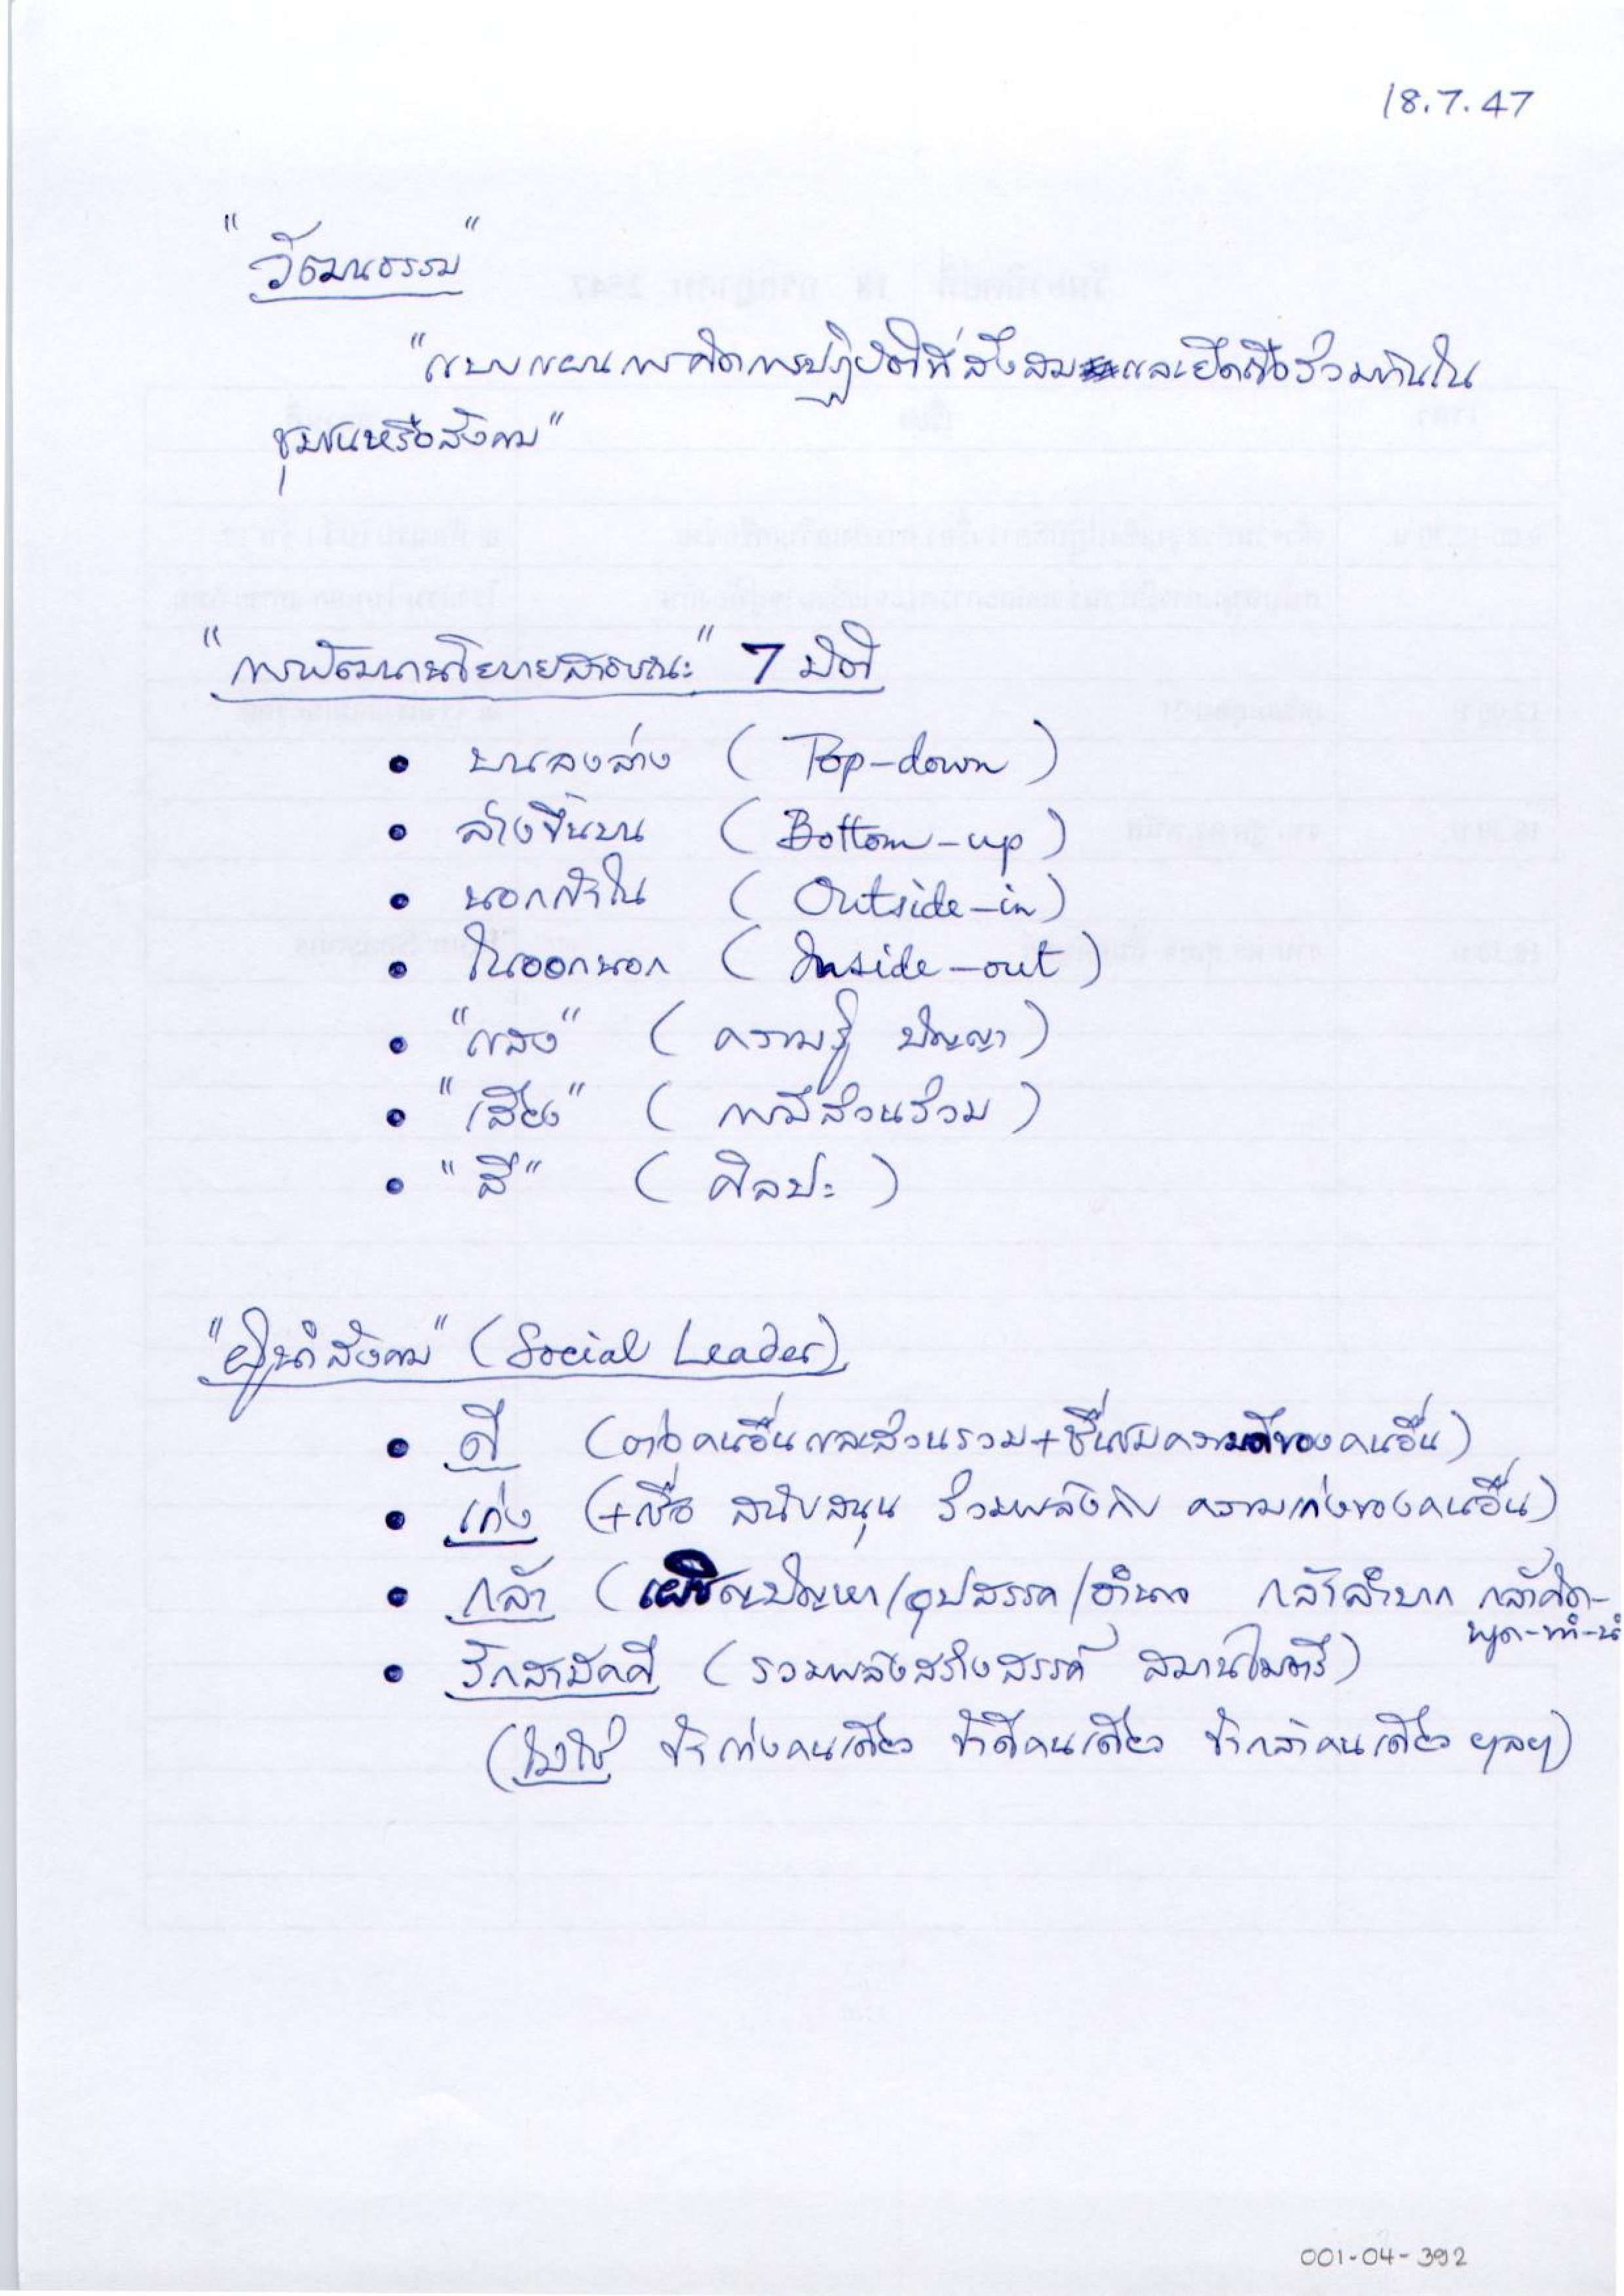 18.7.47
"วัฒนธรรม"
"แบบแผนการคิดการปฏิบัติที่สั่งสมและยึดถือร่วมกันใน
ชุมชนหรือสังคม"
"การพัฒนานโยบายสาธารณะ" 7 มิติ
• บนลงล่าง ( Top-down )
• ล่างขึ้นบน ( Bottom-up )
• นอกเข้าใน ( Outside-in )
• ในออกนอก ( Inside-out )
• "แสง" ( ความรู้ ปัญญา )
• "เสียง" ( การมีส่วนร่วม )
• "สี" ( ศิลปะ )
"ผู้นำสังคม" (Social Leader)
• ดี (ต่อคนอื่นและส่วนรวม+ชื่นชมความดีของคนอื่น)
• เก่ง (+เชื่อ สนับสนุน ร่วมพลังกับ ความเก่งของคนอื่น)
• กล้า (เผชิญปัญหา/อุปสรรค/อำนาจ กล้าลำบาก กล้าคิด-
พูด-ทำ-นำ
• รักสามัคคี (รวมพลังสร้างสรรค์ สมานไมตรี)
(ไม่ใช่ ข้าเก่งคนเดียว ข้าดีคนเดียว ข้ากล้าคนเดียว ฯลฯ)
001-04-392